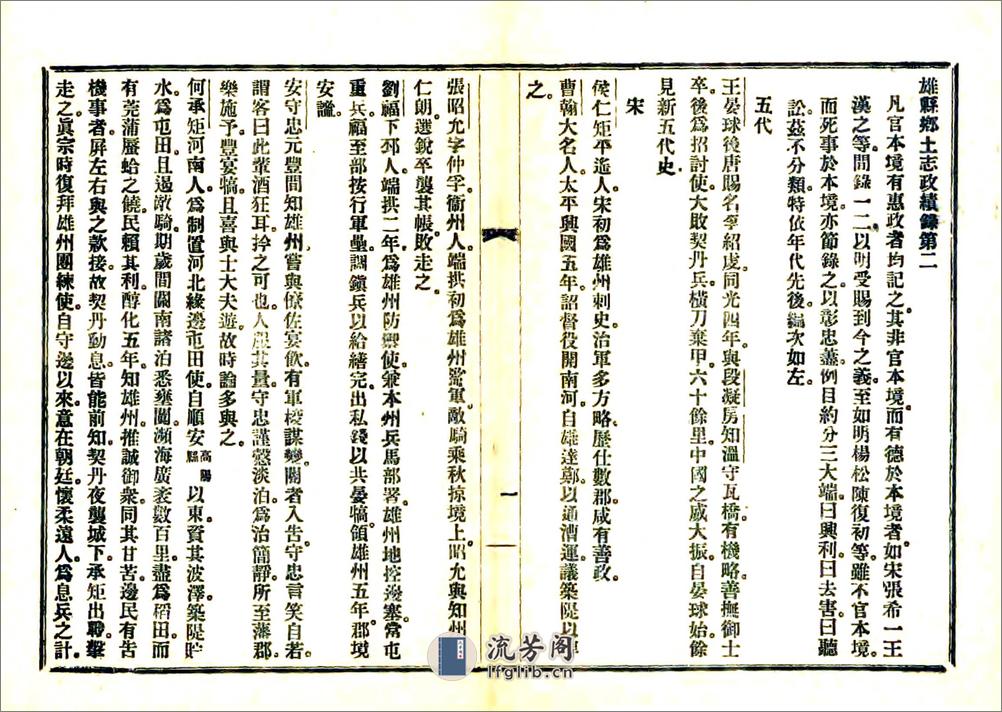 雄縣鄉土志政績錄第二
凡官本境有惠政者均記之其非官本境而有德於本境者如宋張希一王
漢之等間錄一二以明受賜到今之義至如明楊松陳復初等雖不官本境。
而死事於本境亦節錄之以彰忠藎。例目約分三大端。曰興利。曰去害。曰聽
訟。茲不分類。特依年代先後。編次如左。
五代
王晏球後唐賜名李紹虔。同光四年。與段凝房知溫守瓦橋。有機略善撫御士
卒。後爲招討使。大敗契丹兵。橫刀棄甲。六十餘里。中國之威大振。自晏球始。餘
見新五代史。
宋
侯仁矩平遙人。宋初爲雄州刺史。治軍多方略。歷仕數郡。咸有善政。
曹翰大名人。太平興國五年。詔督役開南河。自雄達鄭。以通漕運。議築隄以
之。
張昭允字仲孚。衞州人。端拱初爲雄州監軍。敵騎乘秋掠境上。昭允與知州
仁朗選銳卒襲其帳。敗走之。
劉福下邳人。端拱二年。爲雄州防禦使。兼本州兵馬部署。雄州地控邊塞。常屯
重兵。福至部按行軍壘。調鎭兵以給繕完。出私錢以共晏犒。領雄州五年。郡境
安謐。
安守忠元豐間知雄州。嘗與僚佐宴飲。有軍校謀變。關者入告。守忠言笑自若。
謂客曰此輩酒狂耳。拎之可也。人服其量。守忠謹愨淡泊。爲治簡靜。所至藩郡。
樂施予。豐宴犒。且喜與士大夫遊。故時論多與之。
何承矩河南人。爲制置河北緣邊屯田使。自順安高陽縣以東。資其波澤。築隄貯
水爲屯田。且遏敵騎。期歲間關南諸泊悉壅闐。瀕海廣袤數百里。盡爲稻田。而
有莞蒲蜃蛤之饒。民賴其利。醇化五年。知雄州。推誠御衆。同其甘苦。邊民有告
機事者。屏左右與之款接。故契丹動息。皆能前知。契丹夜襲城下。承矩出聯擊
走之。眞宗時復拜雄州團練使。自守邊以來。意在朝廷。懷柔遠人。爲息兵之計。
一
流芳阁
lfglib.cn